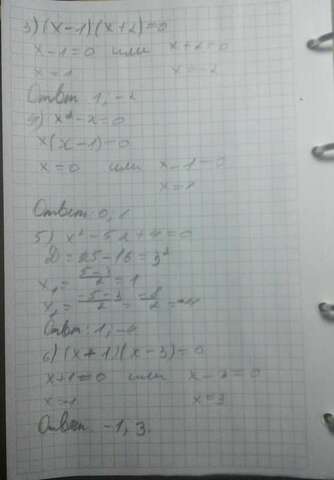 3) (x-1)(x+2)=0
x-1=0 или x+2=0
x=1 x=-2
Ответ: 1, -2
4) x²-x=0
x(x-1)=0
x=0 или x-1=0
x=1
Ответ: 0, 1
5) x²-5x+4=0
D=25-16=3²
x₁=(5-3)/2=1
x₂=(-5-3)/2=-8/2=-4
Ответ: 1, -4
6) (x+1)(x-3)=0
x+1=0 или x-3=0
x=-1 x=3
Ответ: -1, 3.